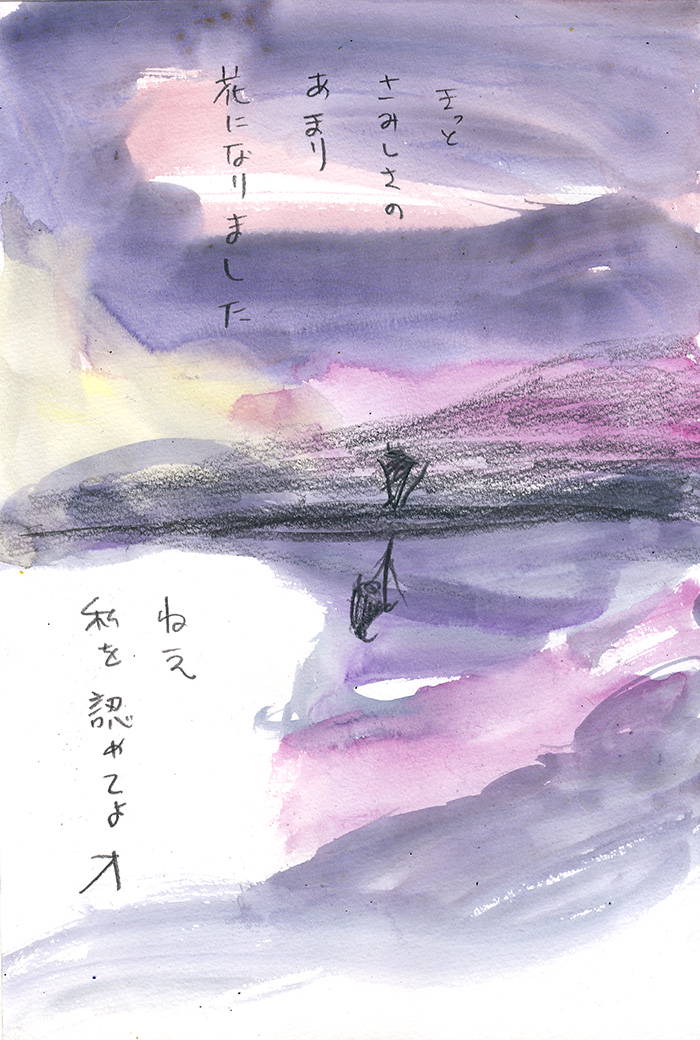 きっと
さみしさの
あまり
花になりました
ねえ
私を認めてよ